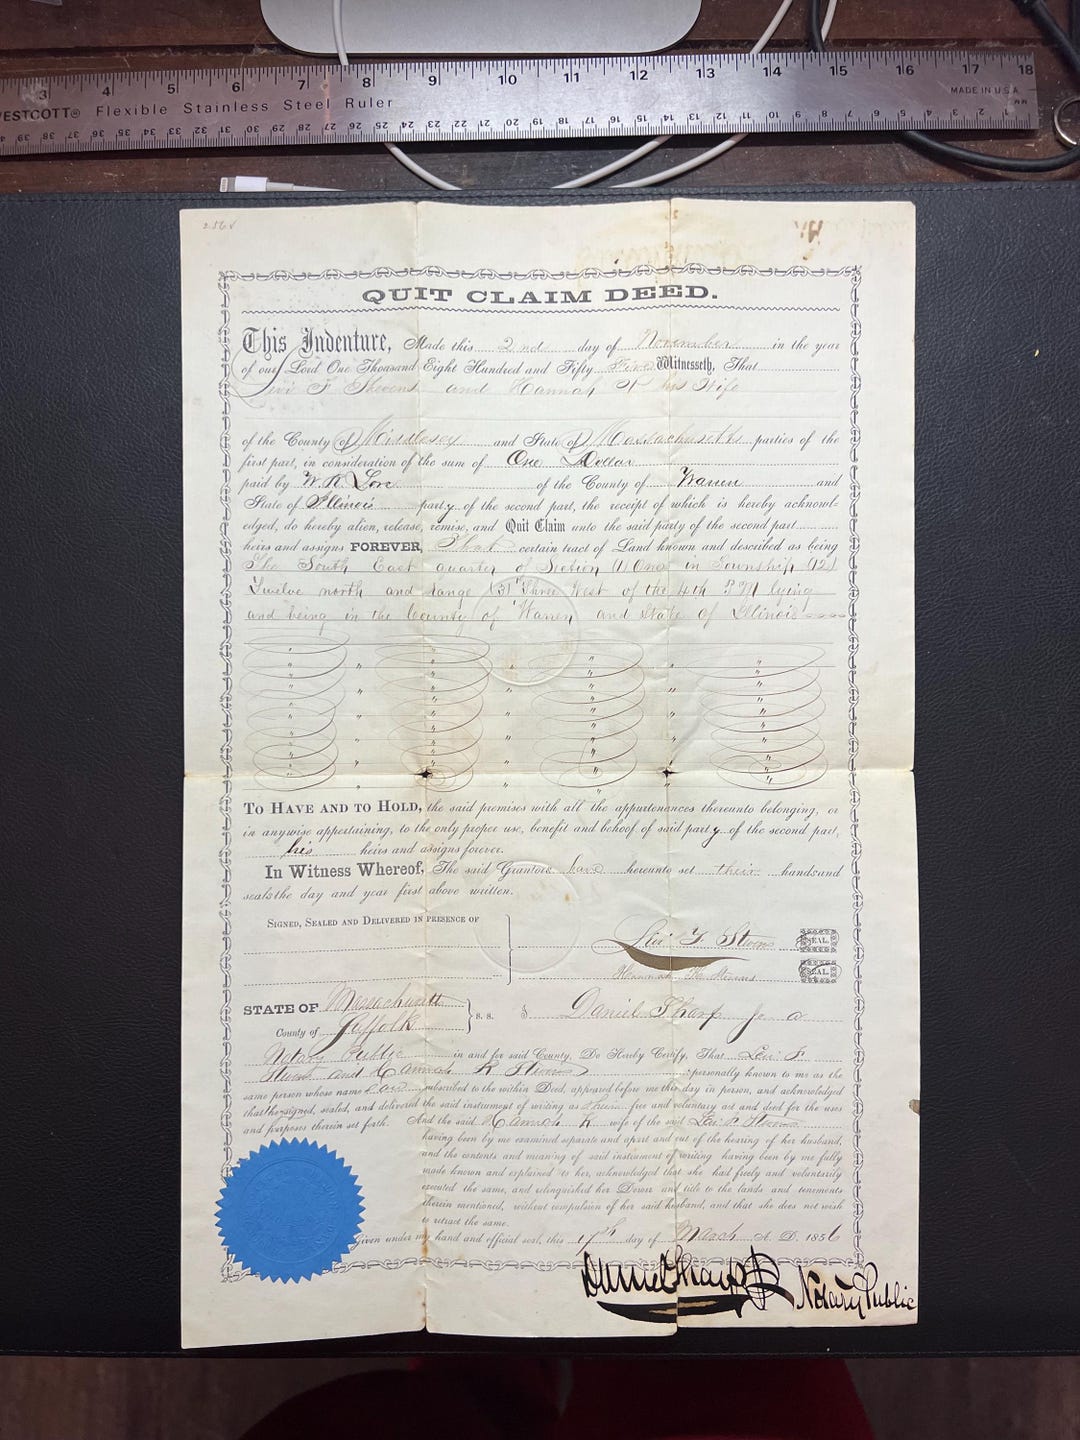 3 4 5 6 7 8 9 10 11 12 13 14 15 16 17 18
WESTCOTT® Flexible Stainless Steel Ruler MADE IN U.S.A.
39 38 37 36 35 34 33 32 31 30 29 28 27 26 25 24 23 22 21 20 19 18 17 16 15 14 13 12 11 10 9 8 7 6 5 4 3 2 1
QUIT CLAIM DEED.
This Indenture, Made this 2nd day of November in the year
of our Lord One Thousand Eight Hundred and Fifty Five Witnesseth, That
Levi F Stevens and Hannah his Wife
of the County of Middlesex and State of Massachusetts parties of the
first part, in consideration of the sum of One Dollar
paid by W. K Love of the County of Warren and
State of Illinois party of the second part, the receipt of which is hereby acknowl-
edged, do hereby alien, release, remise, and Quit Claim unto the said party of the second part
heirs and assigns FOREVER, That certain tract of Land known and described as being
The South East quarter of Section (1) One in Township (12)
Twelve north and range (3) Three West of the 4th P M lying
and being in the County of Warren and State of Illinois
TO HAVE AND TO HOLD, the said premises with all the appurtenances thereunto belonging, or
in anywise appertaining, to the only proper use, benefit and behoof of said party of the second part,
his heirs and assigns forever.
In Witness Whereof, The said Grantors have hereunto set their hands and
seals the day and year first above written.
SIGNED, SEALED AND DELIVERED IN PRESENCE OF
Levi F. Stevens SEAL.
Hannah K. Stevens SEAL.
STATE OF Massachusetts
County of Suffolk s. s. I Daniel Sharp Jr a
Notary Public in and for said County, Do Hereby Certify, That Levi F
Stevens and Hannah K Stevens personally known to me as the
same person whose name are subscribed to the within Deed, appeared before me this day in person, and acknowledged
that the signed, sealed, and delivered the said instrument of writing as their free and voluntary act and deed for the uses
and purposes therein set forth. And the said Hannah K wife of the said Levi F Stevens
having been by me examined separate and apart and out of the hearing of her husband,
and the contents and meaning of said instrument of writing having been by me fully
made known and explained to her, acknowledged that she had freely and voluntarily
executed the same, and relinquished her Dower and title to the lands and tenements
therein mentioned, without compulsion of her said husband, and that she does not wish
to retract the same.
Given under my hand and official seal, this 17th day of March A. D. 1856
Daniel Sharp Jr Notary Public